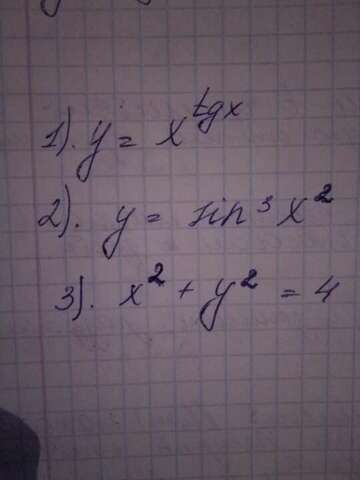 1). y = x^tgx
2). y = sin³ x²
3). x² + y² = 4